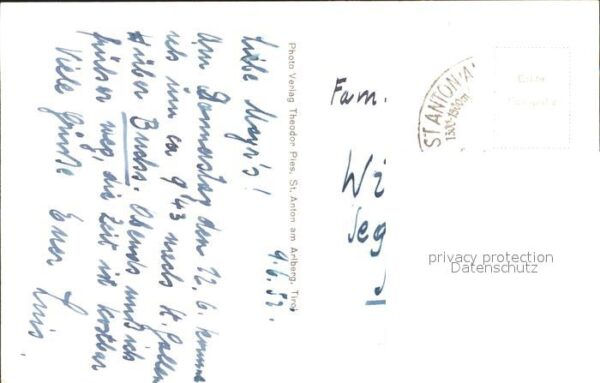 9.6.52.
Liebe Mayr's!
Am Donnerstag den 12. 6. komme
ich um ca 9.43 nach St. Gallen
über Buchs. Abends muß ich
früher weg, die Zeit ist kostbar
Viele Grüße Euer Luis.
Photo Verlag Theodor Pies, St. Anton am Arlberg, Tirol
Fam.
Wi
Seg
ST. ANTON A.
1300-1800m
Echte
Fotografie
privacy protection
Datenschutz